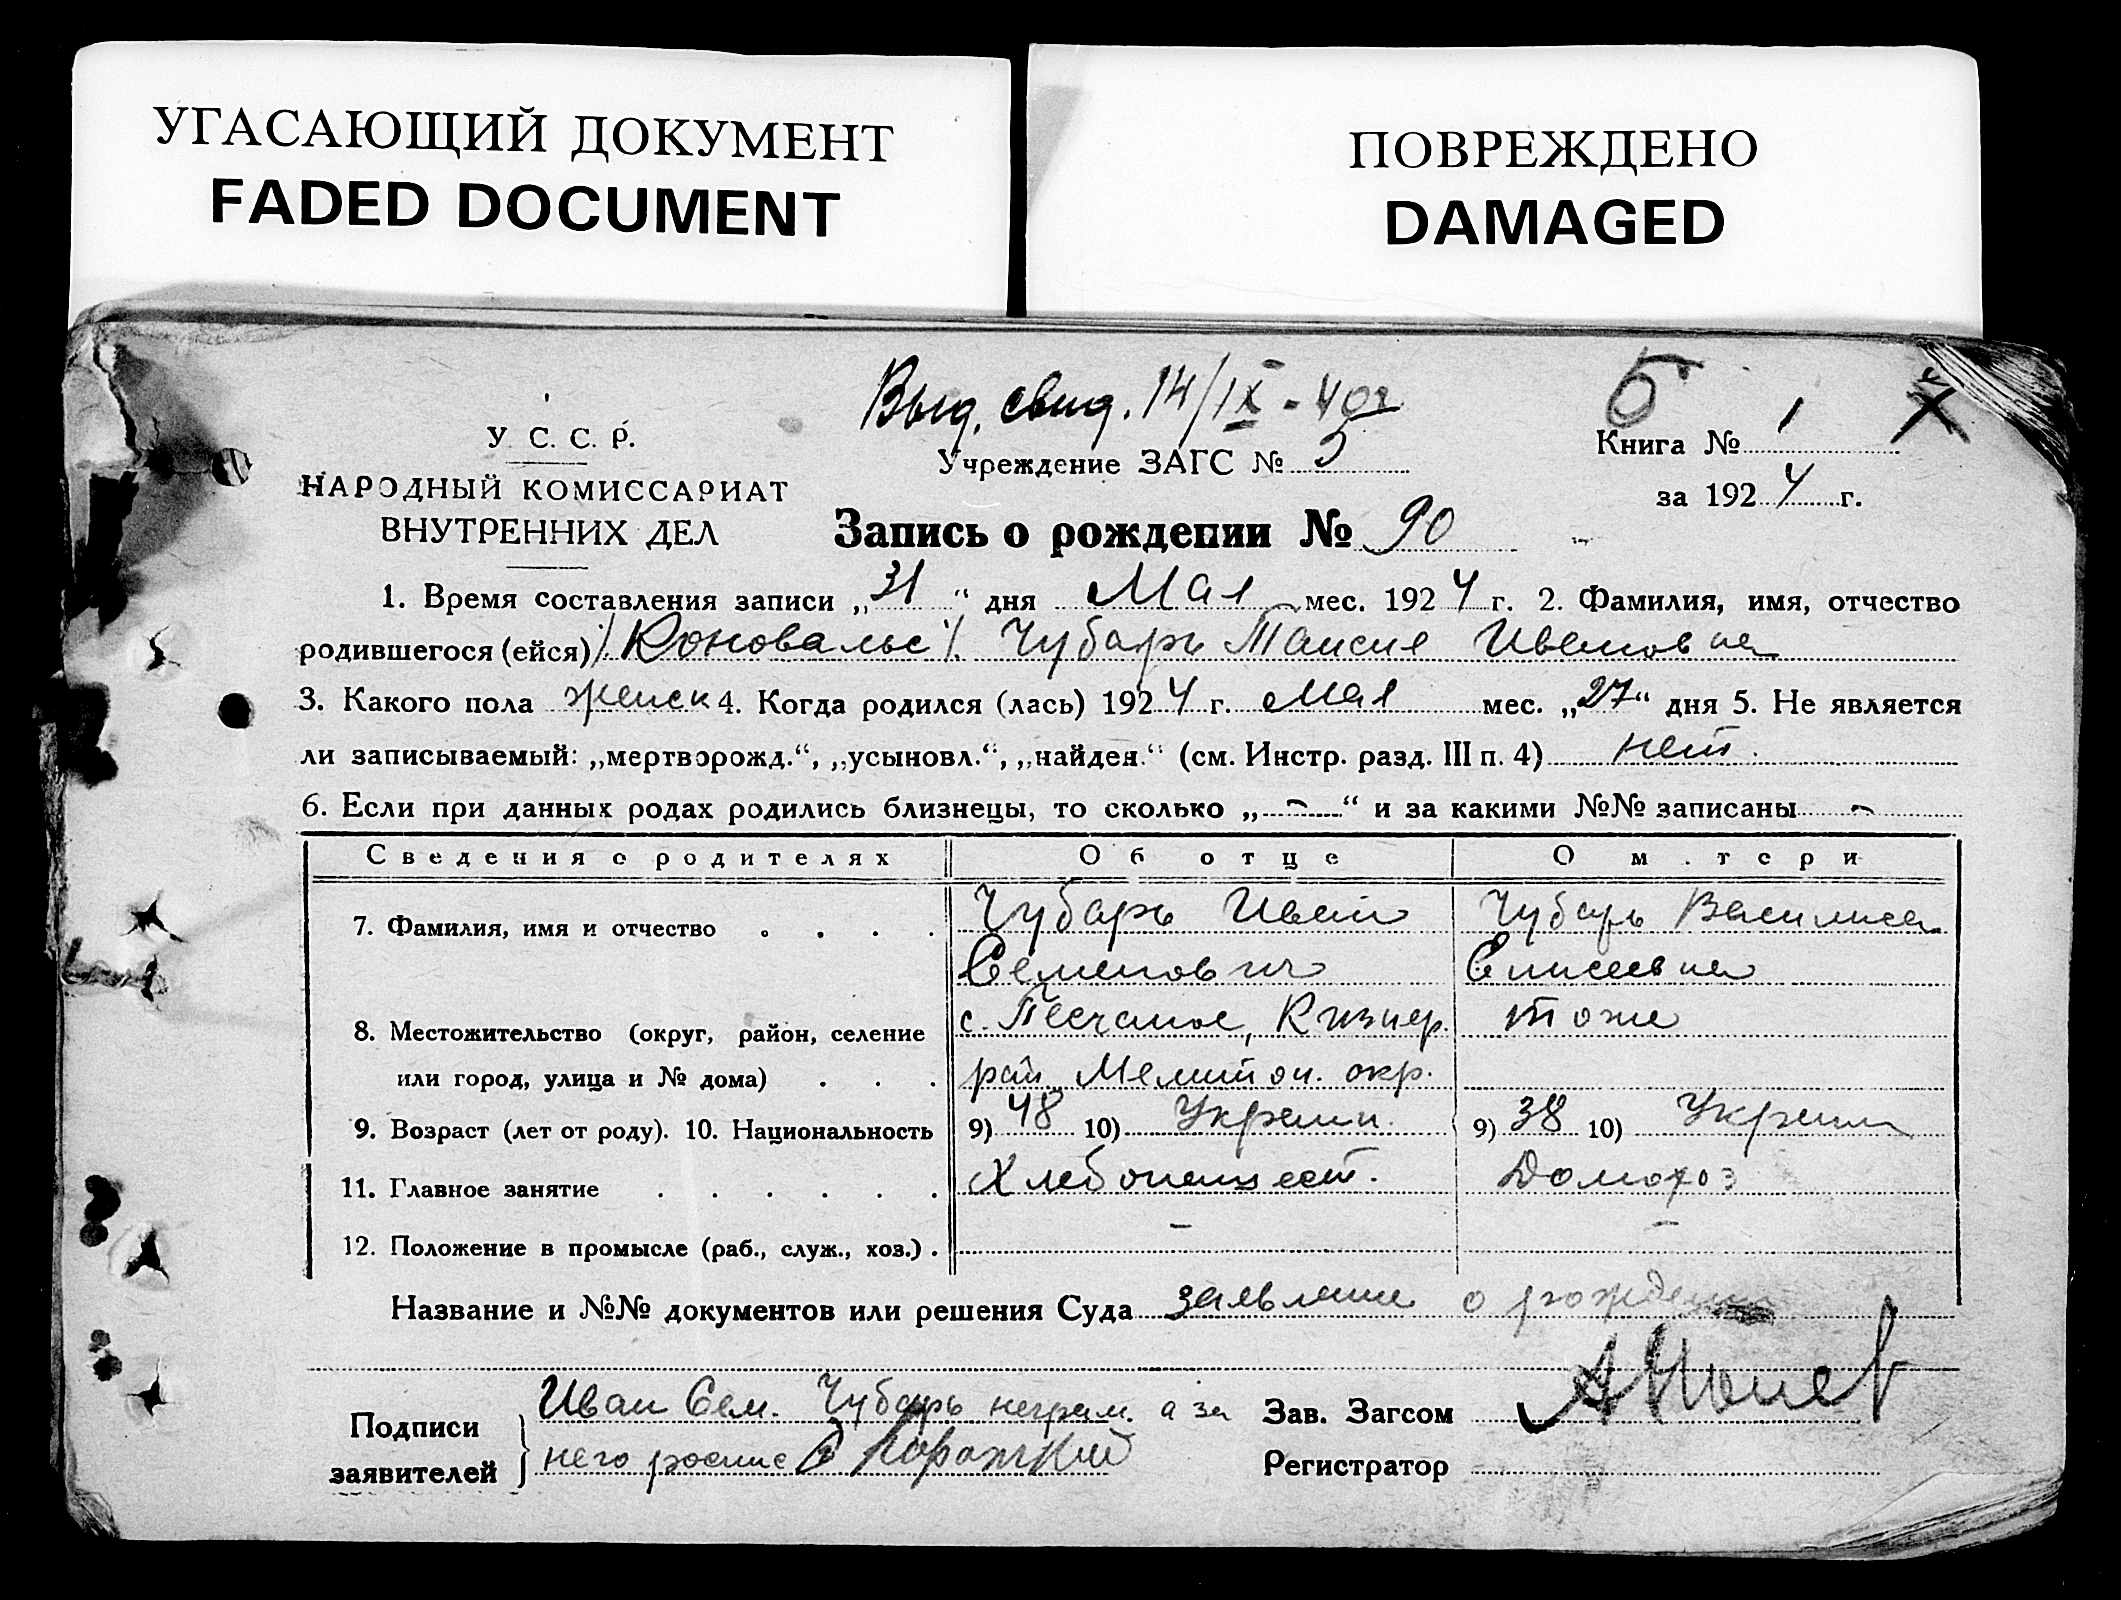 УГАСАЮЩИЙ ДОКУМЕНТ
FADED DOCUMENT
ПОВРЕЖДЕНО
DAMAGED
Выд. свид. 14/IX - 40г
Б
У. С. С. Р.
НАРОДНЫЙ КОМИССАРИАТ
ВНУТРЕННИХ ДЕЛ
Учреждение ЗАГС № 5
Книга № 1
за 1924 г.
Запись о рождении № 90
1. Время составления записи „31“ дня Мая мес. 1924 г. 2. Фамилия, имя, отчество
родившегося (ейся) /Коновальс/. Чубарь Таисия Ивановна
3. Какого пола женск 4. Когда родился (лась) 1924 г. Мая мес. „27“ дня 5. Не является
ли записываемый: „мертворожд.“, „усыновл.“, „найден.“ (см. Инстр. разд. III п. 4) нет.
6. Если при данных родах родились близнецы, то сколько „-“ и за какими №№ записаны -
Сведения о родителях Об отце О м.тери
7. Фамилия, имя и отчество . . . . Чубарь Иван Чубарь Василиса
Семенович Елисеевна
8. Местожительство (округ, район, селение с. Песчаное, Кизиер. тоже
или город, улица и № дома) . . . рай. Мелитоп. окр.
9. Возраст (лет от роду). 10. Национальность 9) 48 10) Украин. 9) 38 10) Украин
11. Главное занятие . . . . . . Хлебопашест. Домохоз
12. Положение в промысле (раб., служ., хоз.) . - -
Название и №№ документов или решения Суда заявление о рождении
Подписи заявителей Иван Сем. Чубарь неграм. а за
него роспис
Зав. Загсом
Регистратор